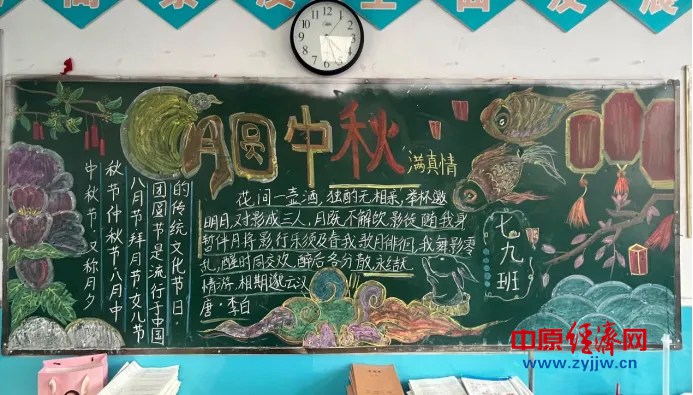 月圆中秋
满真情
花间一壶酒,独酌无相亲,举杯邀
明月,对影成三人,月既不解饮,影徒随我身
暂伴月将影,行乐须及春,我歌月徘徊,我舞影零
乱,醒时同交欢,醉后各分散,永结无
情游,相期邈云汉
唐·李白
中秋节,又称月夕
秋节仲秋节·八月中
八月节·拜月节·女儿节
团圆节是流行于中国
的传统文化节日.
七九班
中原经济网
www.zyjjw.cn